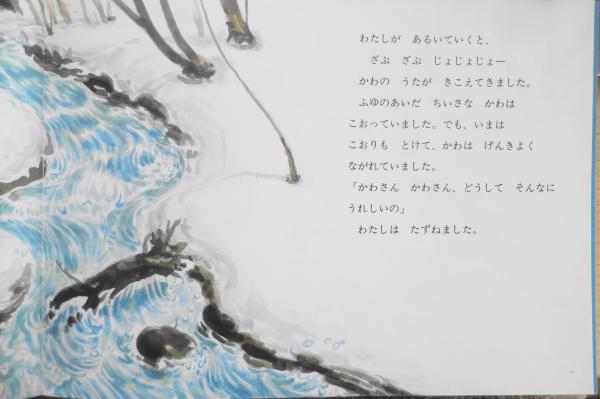 わたしが　あるいていくと、
ざぶ　ざぶ　じょじょじょー
かわの　うたが　きこえてきました。
ふゆのあいだ　ちいさな　かわは
こおっていました。でも、いまは
こおりも　とけて、かわは　げんきよく
ながれていました。
「かわさん　かわさん、どうして　そんなに
うれしいの」
わたしは　たずねました。